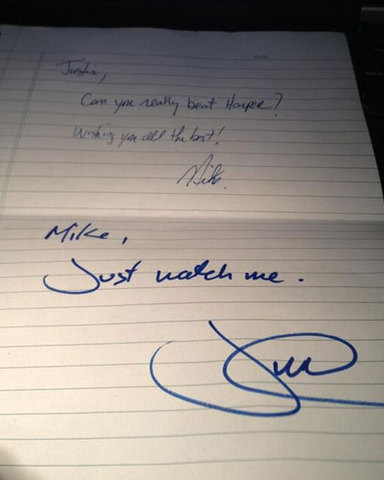 Justin,
Can you really beat Harper?
Wishing you all the best!
Mike
Mike,
Just watch me.